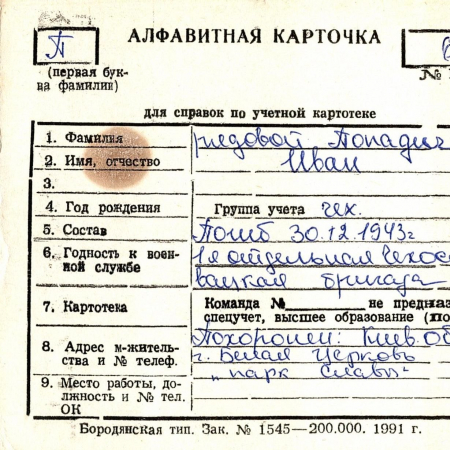 П
АЛФАВИТНАЯ КАРТОЧКА
(первая бук-
ва фамилии)
№
для справок по учетной картотеке
1. Фамилия рядовой Попадич
2. Имя, отчество Иван
3.
4. Год рождения Группа учета чех.
5. Состав Погиб 30.12.1943г
6. Годность к воен-
ной службе
1я отдельная Чехос
вацкая бригада
7. Картотека
Команда № не предназ
спецучет, высшее образование (по
8. Адрес м-житель-
ства и № телеф.
Похоронен: Киев. об
г. Белая Церковь
„парк Славы"
9. Место работы, до-
лжность и № тел.
ОК
Бородянская тип. Зак. № 1545—200.000. 1991 г.